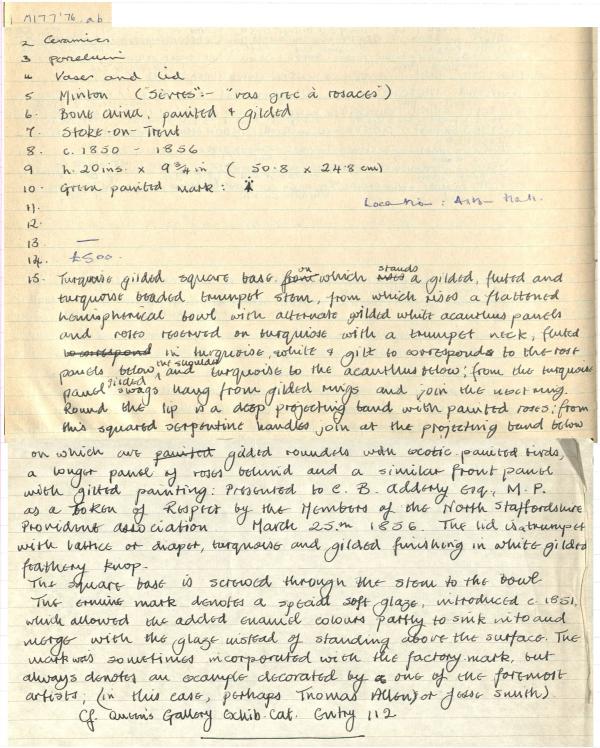 1 M177'76. ab
2 Ceramics
3 porcelain
4 Vase and lid
5 Minton ("Sèvres":- "vas grec à rosaces")
6. Bone china, painted & gilded
7. Stoke-on-Trent
8. c. 1850 - 1856
9 h. 20ins. x 9 3/4 in ( 50.8 x 24.8 cm)
10. Green painted mark:
Location: Aston Hall.
11.
12.
13 —
14. £500.
15. Turquoise gilded square base from on which rises stands a gilded, fluted and
turquoise beaded trumpet stem, from which rises a flattened
hemispherical bowl with alternate gilded white acanthus panels
and roses reserved on turquoise with a trumpet neck, fluted
to correspond in turquoise, white & gilt to corresponds to the rose
panels below, the shoulder and turquoise to the acanthus below; from the turquoise
panel gilded swags hang from gilded rings and join the next ring.
Round the lip is a deep projecting band with painted roses; from
this squared serpentine handles join at the projecting band below
on which are painted gilded roundels with exotic painted birds,
a longer panel of roses behind and a similar front panel
with gilted painting: Presented to C. B. Adderly Esq., M.P.
as a Token of Respect by the Members of the North Staffordshire
Provident association March 25th 1856. The lid is a trumpet
with lattice or diaper, turquoise and gilded finishing in white gilded
feathery knop.
The square base is screwed through the stem to the bowl
The ermine mark denotes a special soft glaze, introduced c. 1851,
which allowed the added enamel colours partly to sink into and
merge with the glaze instead of standing above the surface. The
mark was sometimes incorporated with the factory mark, but
always denotes an example decorated by a one of the foremost
artists; (in this case, perhaps Thomas Allen) or Jesse Smith)
Cf. Queen's Gallery Exhib. Cat. Entry 112